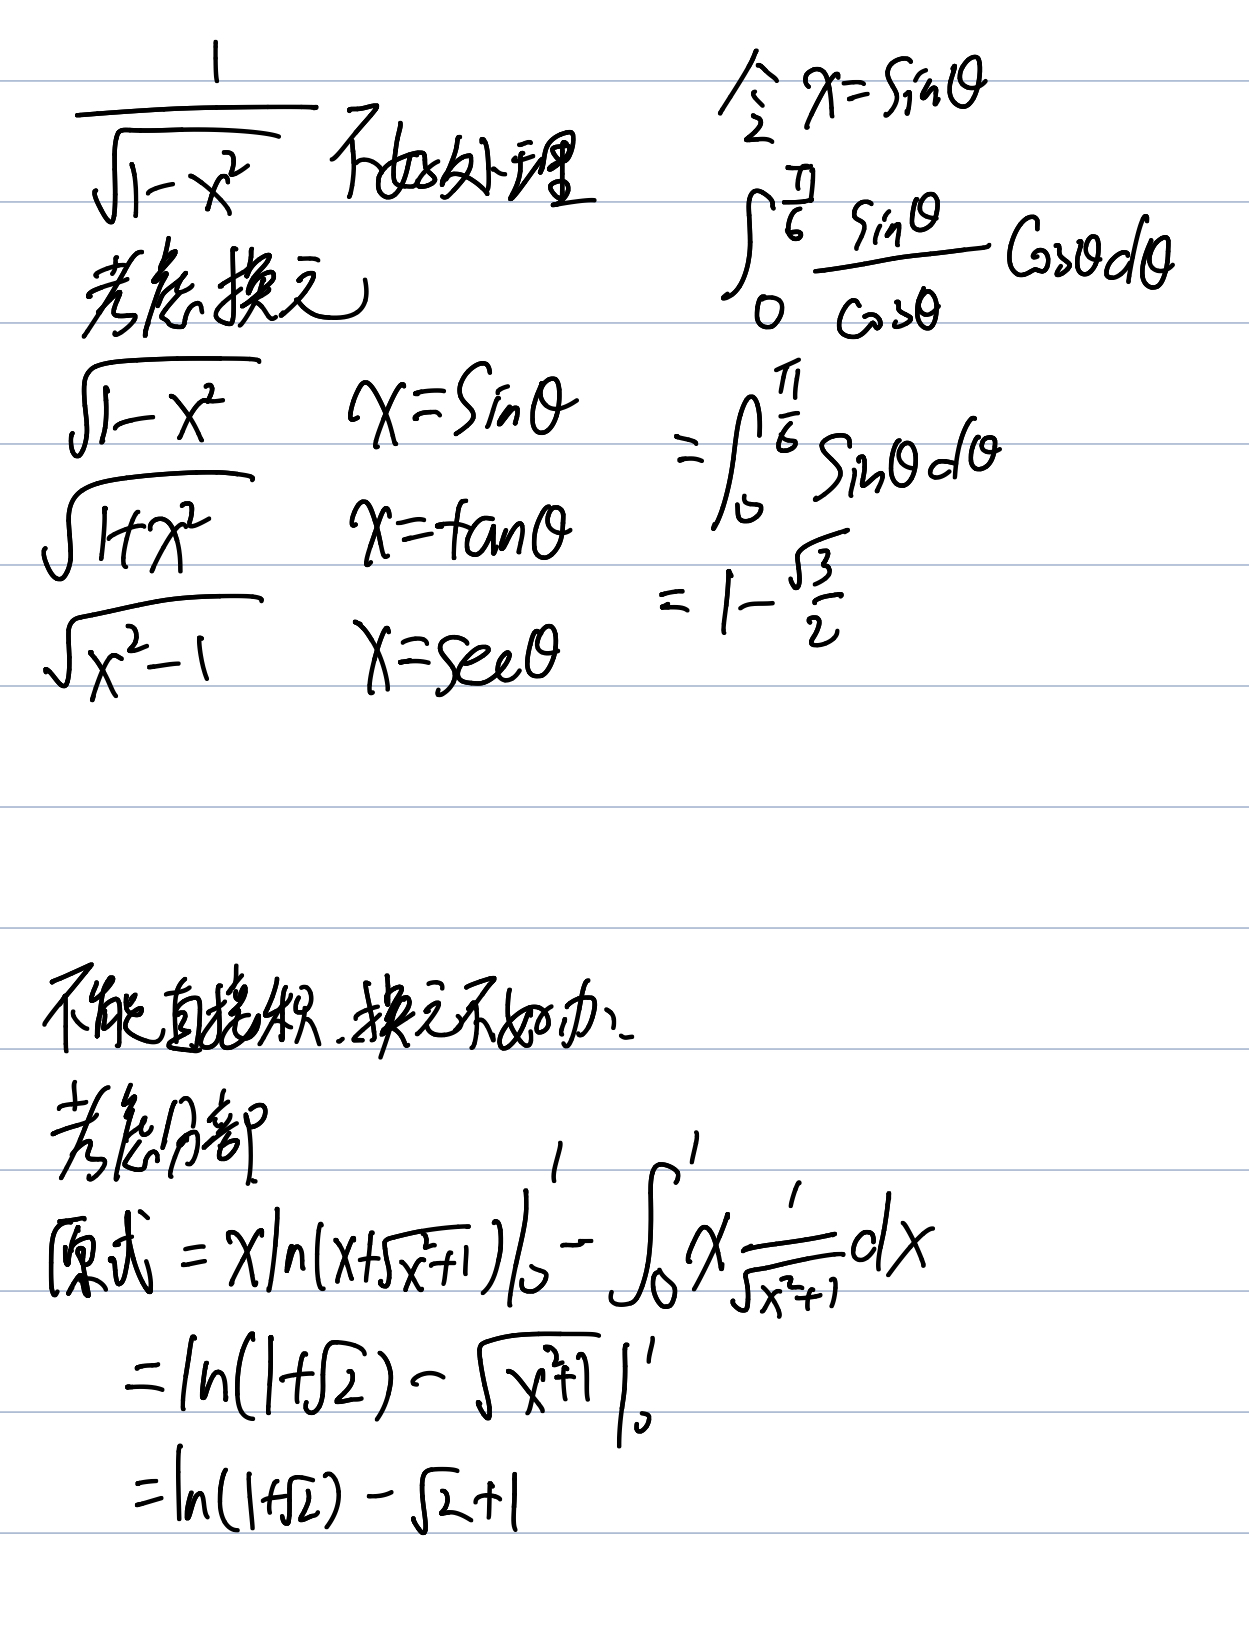 1/√(1-x²) 不好处理
考虑换元
√(1-x²) x=sinθ
√(1+x²) x=tanθ
√(x²-1) x=secθ
令 x=sinθ
∫₀^(π/6) sinθ/cosθ cosθdθ
=∫₀^(π/6) sinθdθ
=1-√3/2
不能直接积.换元不好办、
考虑分部
原式=xln(x+√(x²+1))|₀¹-∫₀¹x 1/√(x²+1) dx
=ln(1+√2)-√(x²+1)|₀¹
=ln(1+√2)-√2+1